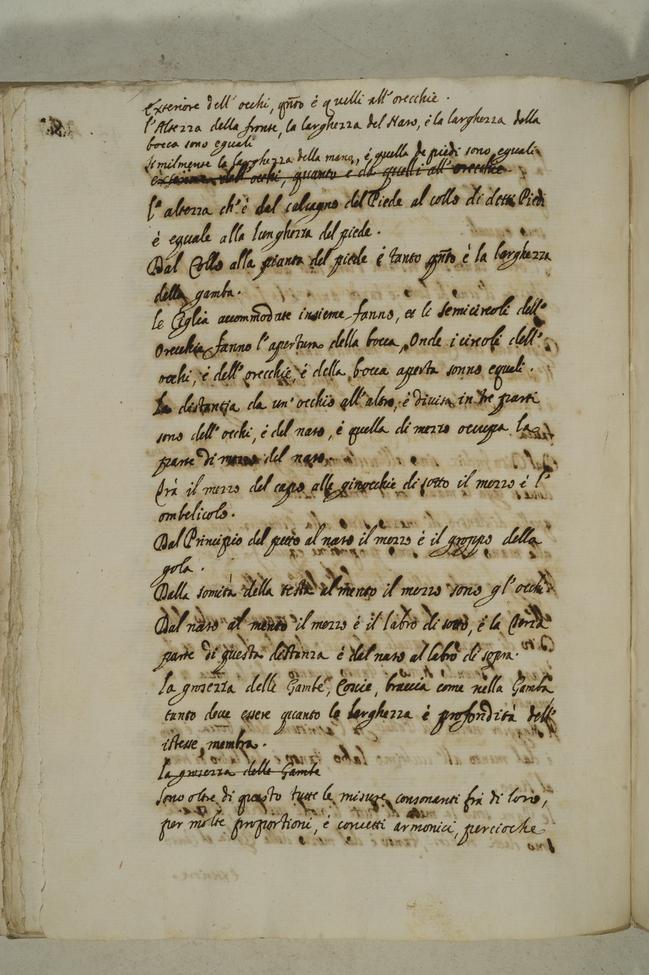 exteriore dell' occhi, qñto è quelli all' orecchie.
l'Altezza della fronte, la larghezza del Naso, è la larghezza della
bocca sono eguali
similmente la larghezza della mano, è quella de piedi sono eguali
dell' occhi, quanto è da quelli all' orecchie
l'altezza ch'è dal calcagno del Piede al collo di detti Piedi
è eguale alla lunghezza del piede.
Dal Collo alla pianta del piede è tanto qñto è la larghezza
della gamba.
le Ciglia accommodate insieme fanno, et li semicircoli dell'
Orecchie fanno l'apertura della bocca, Onde i circoli dell'
occhi, è dell' orecchie, è della bocca aperta sonno equali.
La distantia da un' occhio all' altro, è divisa in tre parti
sono dell' occhi, è del naso, è quella di mezzo occupa la
parte di mezzo del naso.
Trà il mezzo del capo alle ginocchie di sotto il mezzo è l'
ombelicolo.
Dal Principio del petto al naso il mezzo è il groppo della
gola.
Dalla somità della testa al mento il mezzo sono gl'occhi
Dal naso al mento il mezzo è il labro di sotto, è la terza
parte di questa distanza è dal naso al labro di sopra.
la grosezza delle Gambe, Coscie, braccia come nella Gamba
tanto deve essere quanto la larghezza è profondità dell'
istesse membra.
la grosezza delle Gambe
Sono oltre di questo tutte le misure consonanti frà di loro,
per molte proportioni, è concetti armonici, percioche